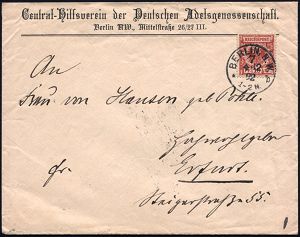 Central-Hilfsverein der Deutschen Adelsgenossenschaft.
Berlin NW., Mittelstraße 26/27 III.
REICHSPOST
BERLIN N.W.
An
Frau von Hansen geb
Hochwohlgeboren
Erfurt.
Steigerstraße 55.